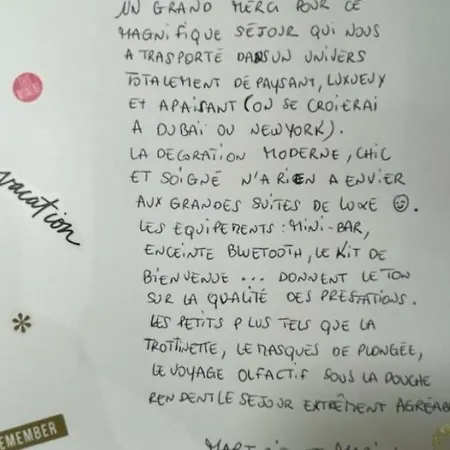 UN GRAND MERCI POUR CE
MAGNIFIQUE SÉJOUR QUI NOUS
A TRASPORTÉ DANS UN UNIVERS
TOTALEMENT DÉPAYSANT, LUXUEUX
ET APAISANT (ON SE CROIERAI
A DUBAÏ OU NEW YORK).
LA DECORATION MODERNE, CHIC
ET SOIGNÉ N'A RIEN A ENVIER
AUX GRANDES SUITES DE LUXE ☺.
LES EQUIPEMENTS : MINI-BAR,
ENCEINTE BLUETOOTH, LE KIT DE
BIENVENUE ... DONNENT LE TON
SUR LA QUALITÉ DES PRESTATIONS.
LES PETITS PLUS TELS QUE LA
TROTTINETTE, LE MASQUES DE PLONGÉE,
LE VOYAGE OLFACTIF SOUS LA DOUCHE
RENDENT LE SEJOUR EXTRÊMENT AGRÉAB
vacation
EMEMBER